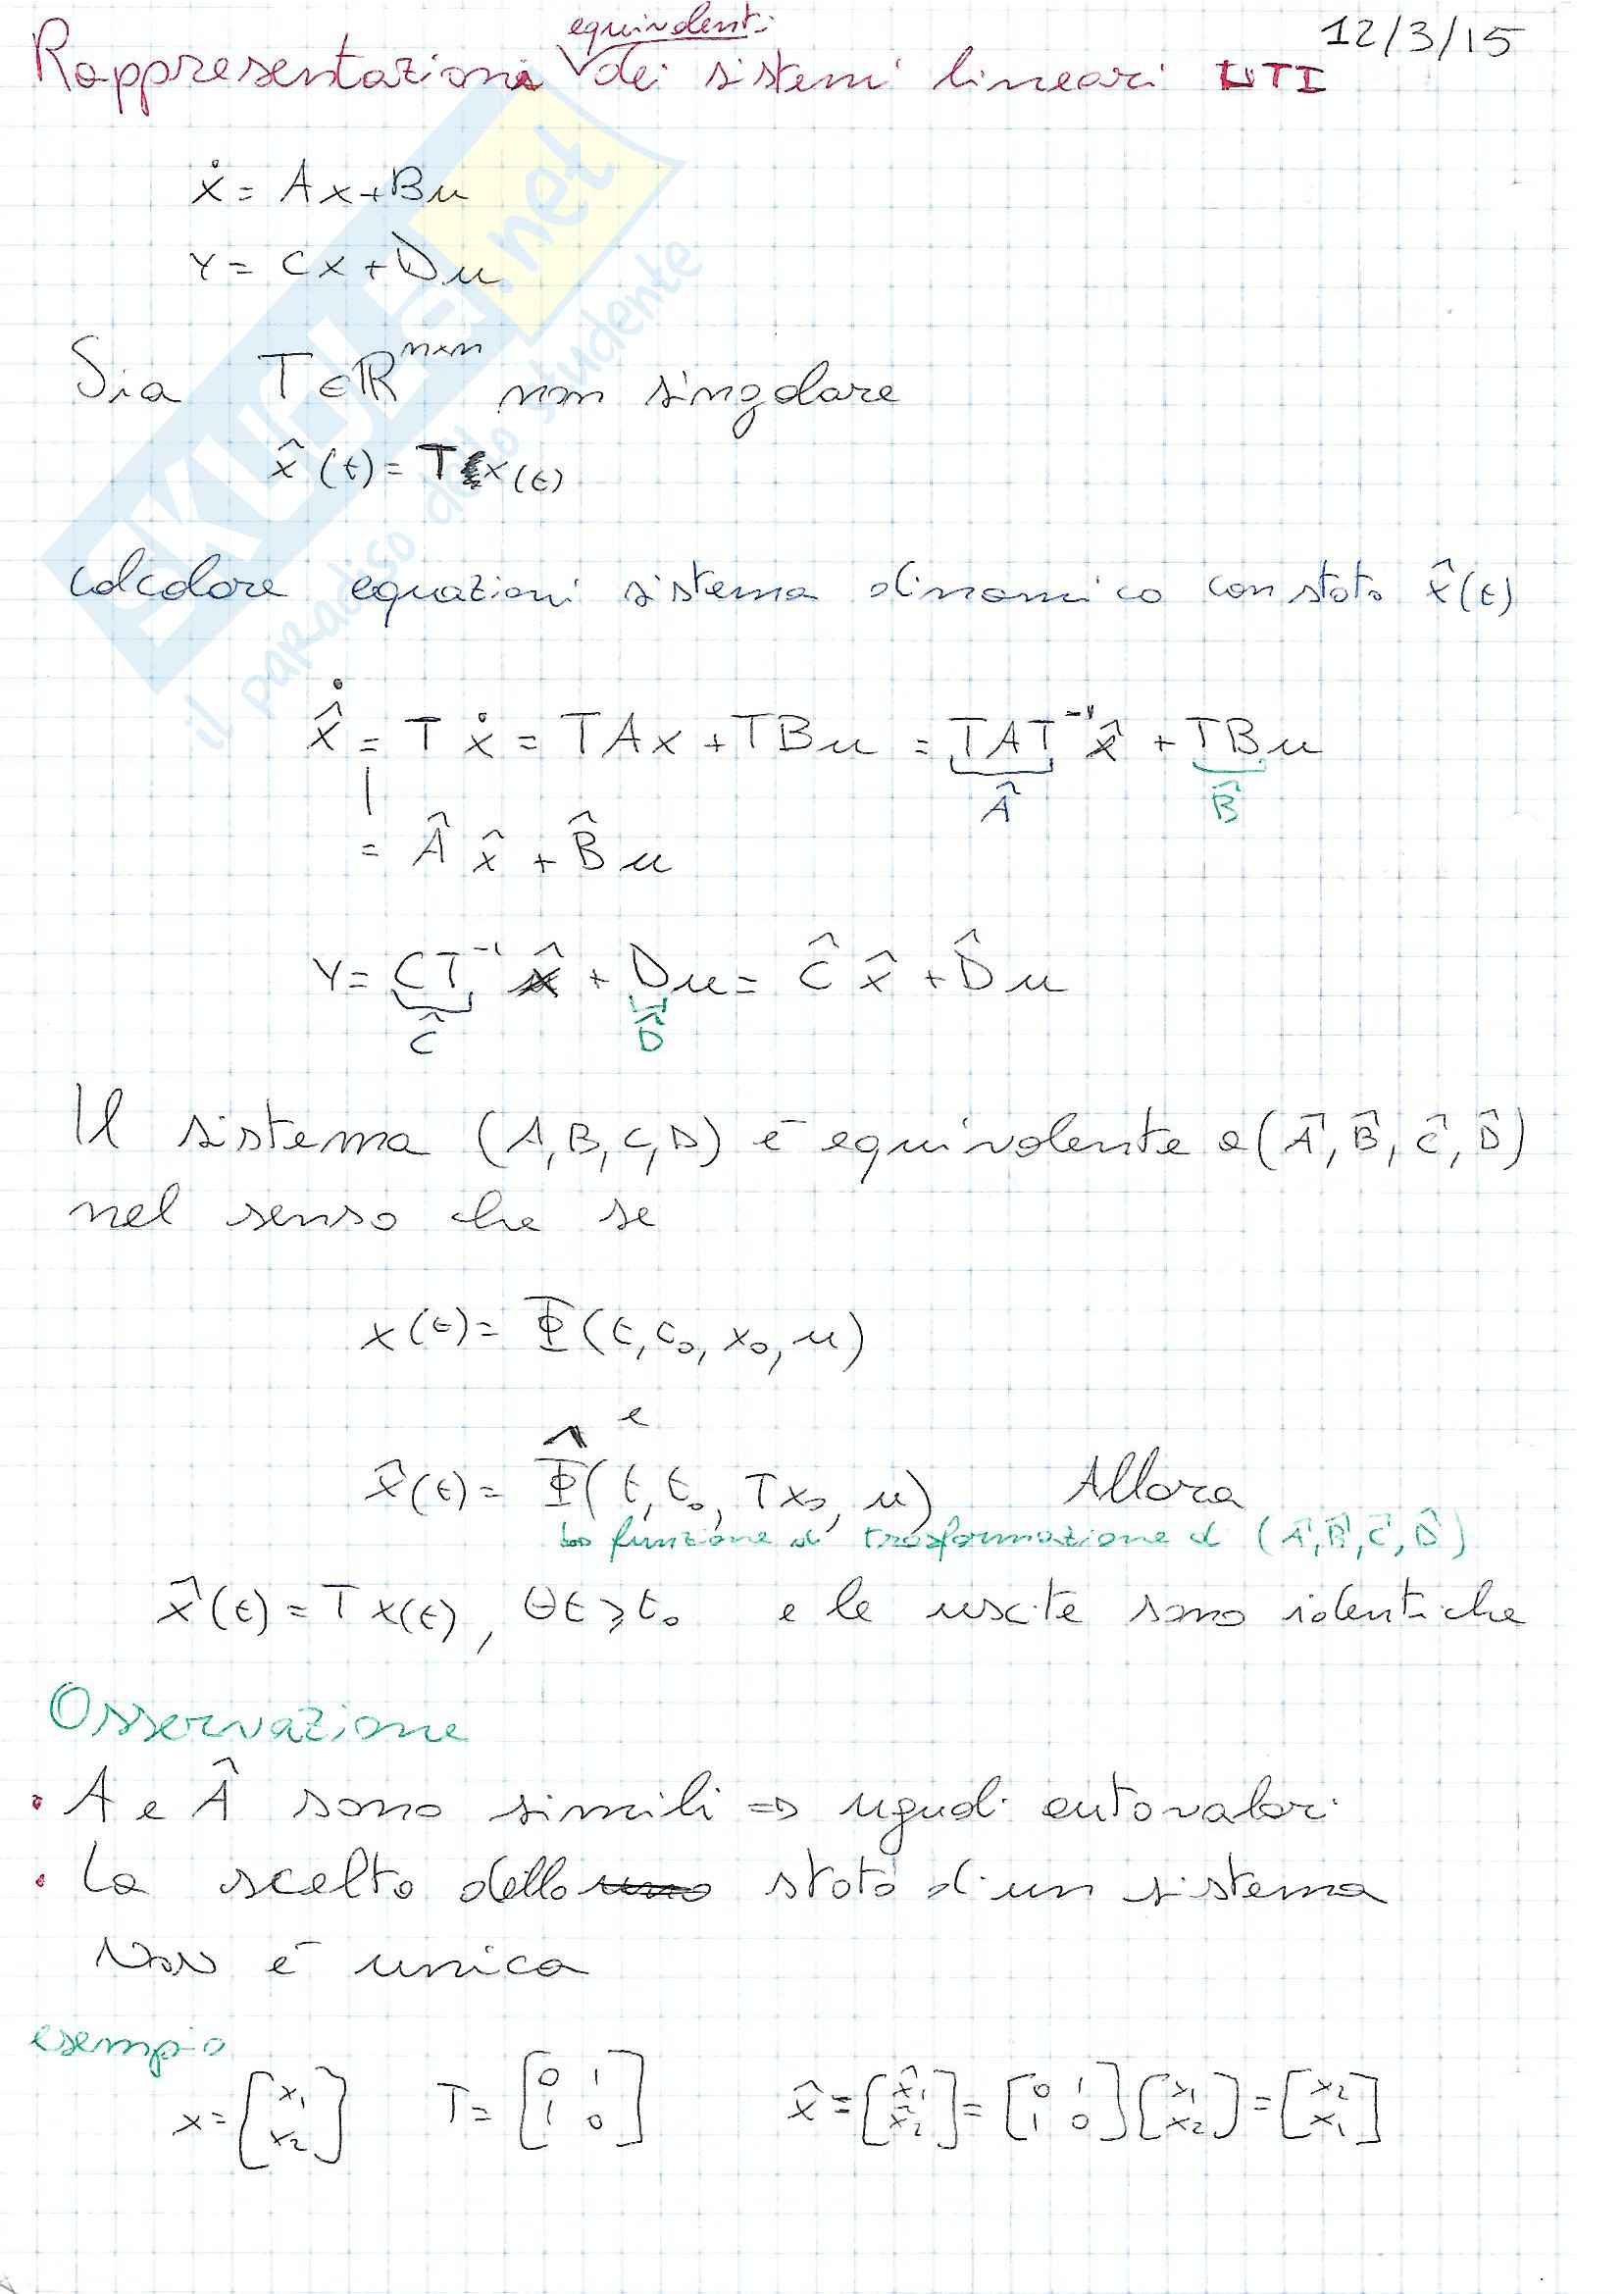 12/3/15
equivalenti
Rappresentazioni dei sistemi lineari LTI
ẋ = Ax + Bu
Y = Cx + Du
Sia T ∈ ℝⁿˣⁿ non singolare
x̂(t) = T x(t)
calcolare equazioni sistema dinamico con stato x̂(t)
x̂̇ = Tẋ = TAx + TBu = TAT⁻¹ x̂ + TBu
Â B̂
= Â x̂ + B̂ u
Y = CT⁻¹ x̂ + Du = Ĉ x̂ + D̂ u
Ĉ D̂
Il sistema (A,B,C,D) è equivalente a (Â, B̂, Ĉ, D̂)
nel senso che se
x(t) = Φ(t, t₀, x₀, u)
e
x̂(t) = Φ̂(t, t₀, Tx₀, u) Allora
↳ funzione di trasformazione di (Â, B̂, Ĉ, D̂)
x̂(t) = T x(t), ∀t ≥ t₀ e le uscite sono identiche
Osservazione
• A e Â sono simili ⇒ uguali autovalori
• La scelta dello stato di un sistema
NON è unica
esempio
x = [x₁ x₂] T = [0 1 1 0] x̂ = [x̂₁ x̂₂] = [0 1 1 0] [x₁ x₂] = [x₂ x₁]
SKUOLA.net
il paradiso dello studente